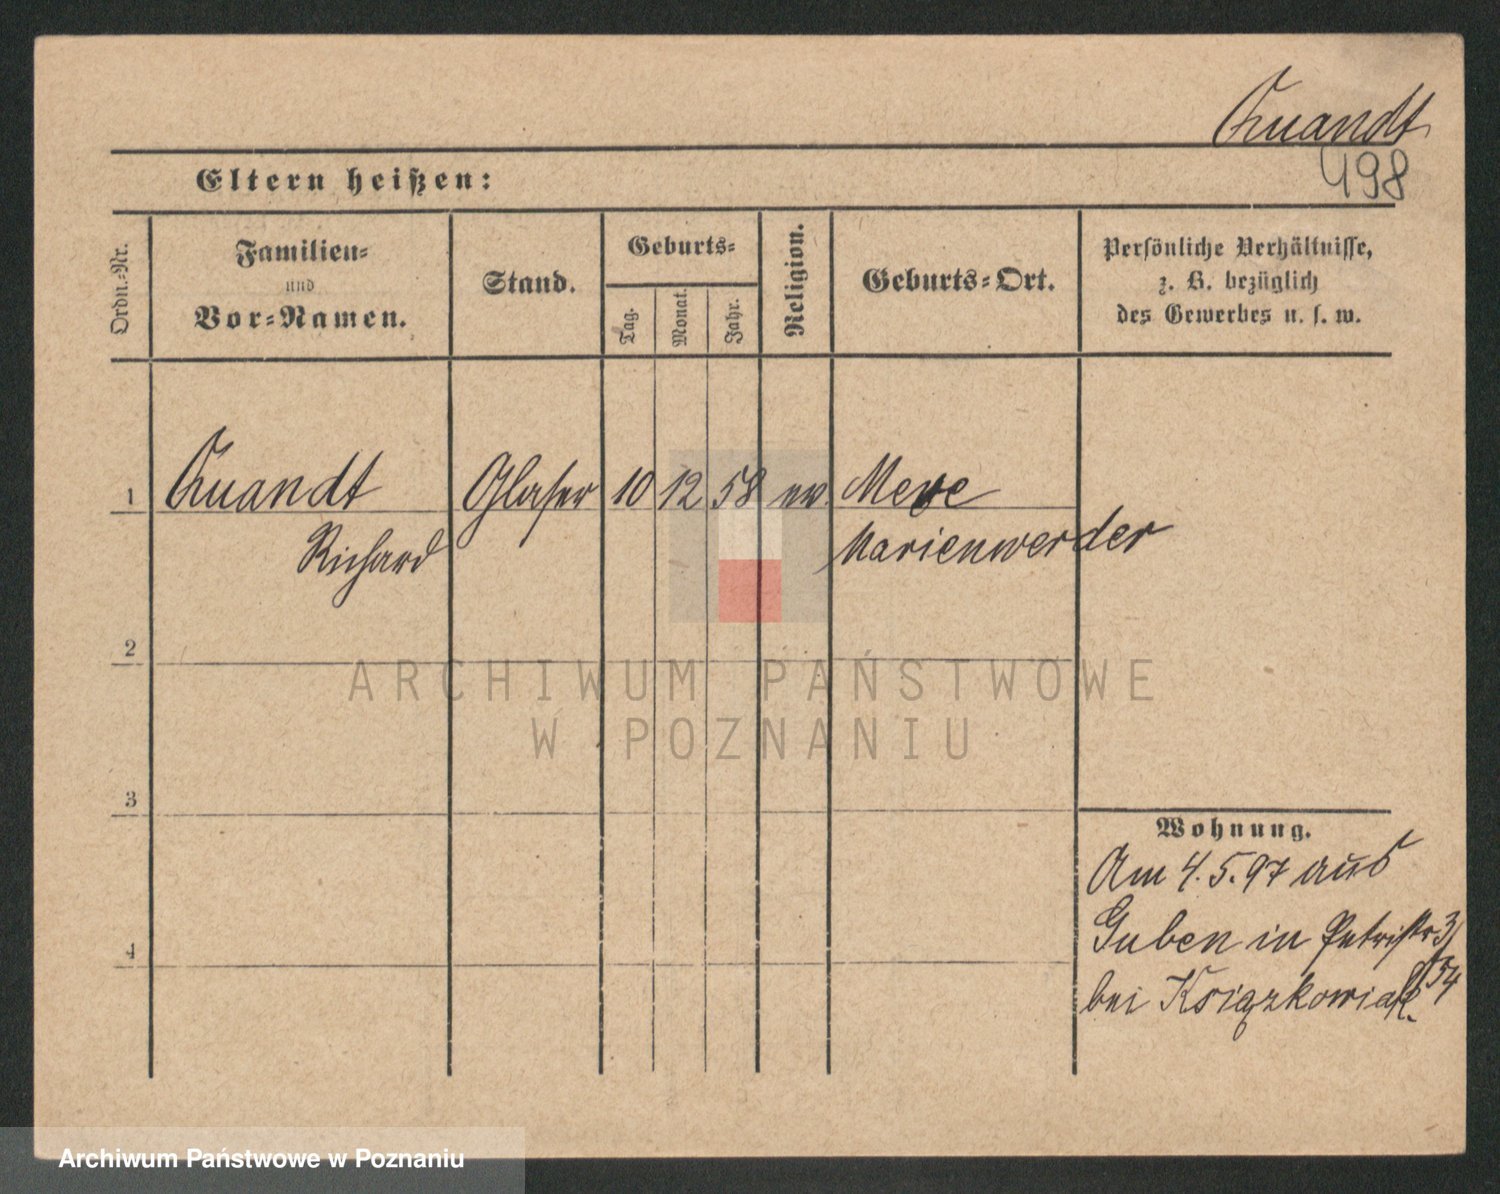 Quandt
498
Eltern heißen:
Ordn.-Nr.
Familien-
und
Vor-Namen.
Stand.
Geburts-
Tag.
Monat.
Jahr.
Religion.
Geburts-Ort.
Persönliche Verhältnisse,
z. B. bezüglich
des Gewerbes u. s. w.
1 Quandt Glaser 10 12 58 ev. Mewe
Richard Marienwerder
2
3
4
Wohnung.
Am 4.5.97 aus
Guben in Petristr 3/
34
bei Książkowiak.
ARCHIWUM PAŃSTWOWE
W POZNANIU
Archiwum Państwowe w Poznaniu